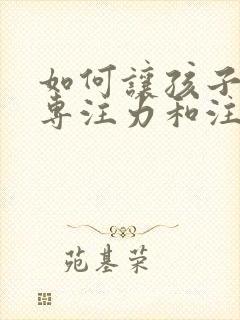 如何讓孩子
專注力和注
苑基荣